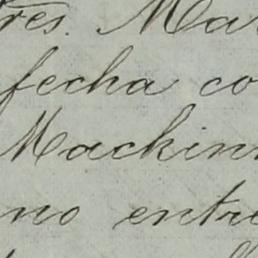 res. Ma
fecha co
Mackin
no entre